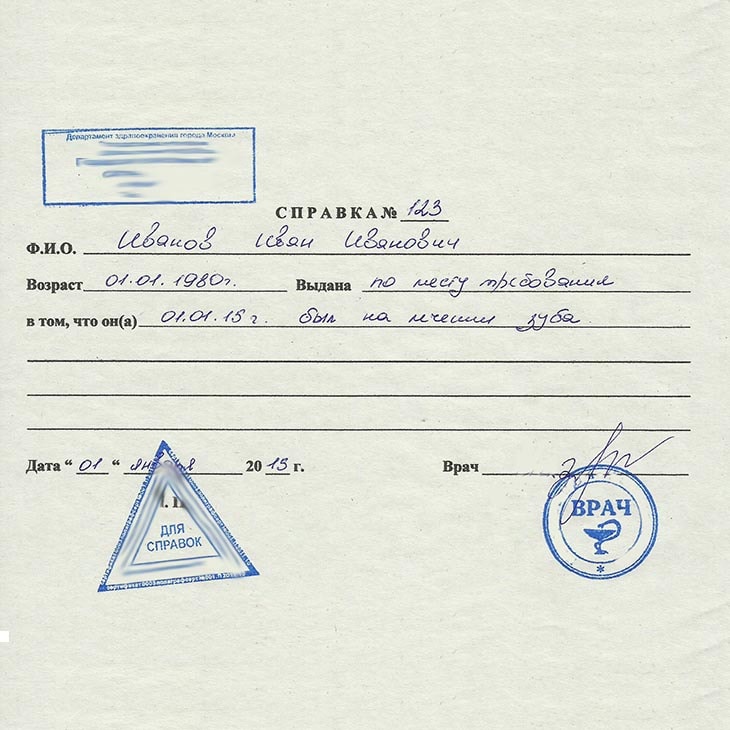 Департамент здравоохранения города Москвы
СПРАВКА № 123
Ф.И.О. Иванов Иван Иванович
Возраст 01.01.1980г. Выдана по месту требования
в том, что он(а) 01.01.15 г. был на лечении зуба
Дата “ 01 “ января 20 15 г. Врач
ДЛЯ
СПРАВОК
ВРАЧ